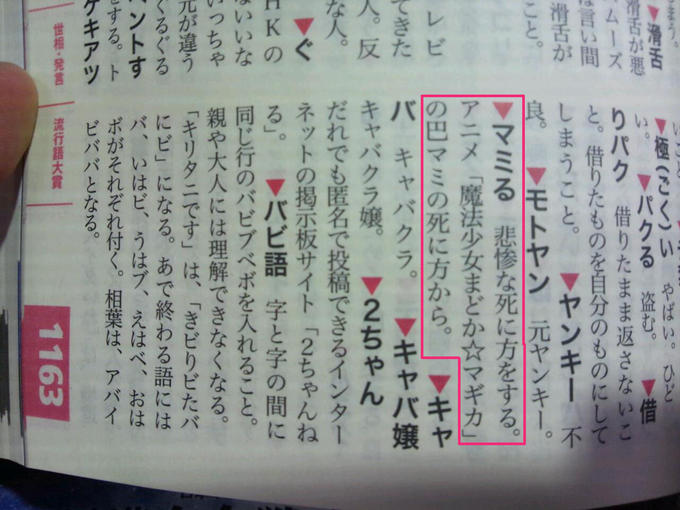 ▼滑舌
滑舌が悪
ムーズ
は言い間
滑舌が
こと。
レビ
てきた
人。反
な人。
▼ぐ
HKの
いいな
いっちゃ
元が違う
ぐるぐる
ントす
をする。ト
ゲキアツ
▼極(ごく)い やばい。ひど
い。▼パクる 盗む。▼借
りパク 借りたまま返さないこ
と。借りたものを自分のものにして
しまうこと。▼ヤンキー 不
良。▼モトヤン 元ヤンキー。
▼マミる 悲惨な死に方をする。
アニメ「魔法少女まどか☆マギカ」
の巴マミの死に方から。▼キャ
バ キャバクラ。▼キャバ嬢
キャバクラ嬢。▼2ちゃん
だれでも匿名で投稿できるインター
ネットの掲示板サイト「2ちゃんね
る」。▼バビ語 字と字の間に
同じ行のバビブベボを入れること。
親や大人には理解できなくなる。
「キリタニです」は、「きビりビたバ
にビ」になる。あで終わる語には
バ、いはビ、うはブ、えはベ、おは
ボがそれぞれ付く。相葉は、アバイ
ビババとなる。
世相・発言
流行語大賞
1163